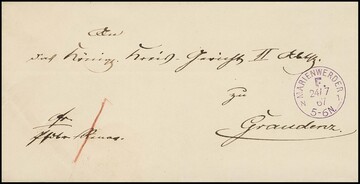 An
das Königl. Kreis-Gericht II Abth.
zu
Graudenz.
MARIENWERDER
24/7
67
5-6N.